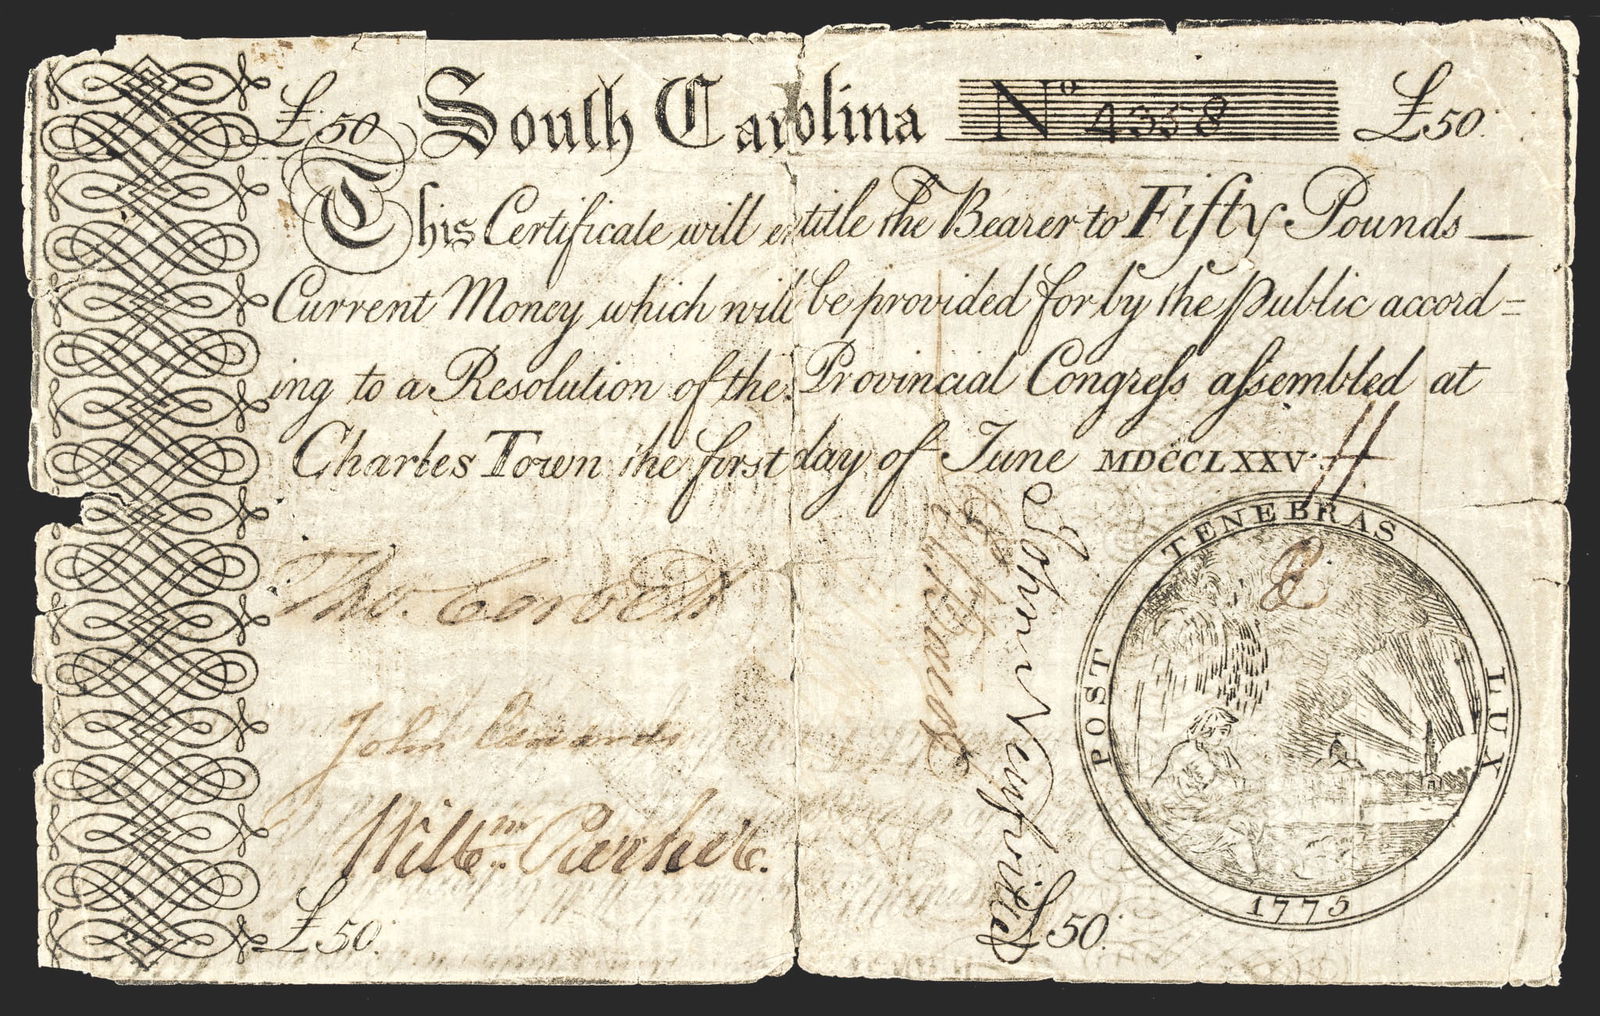 £50 South Carolina No 4358 £50
This Certificate will entitle the Bearer to Fifty Pounds
Current Money which will be provided for by the Public accord=
ing to a Resolution of the Provincial Congress assembled at
Charles Town the first day of June MDCCLXXV
Tho. Corbett
John Edwards
Willm. Parker
John Neufville
POST TENEBRAS LUX
1775
£50
£50